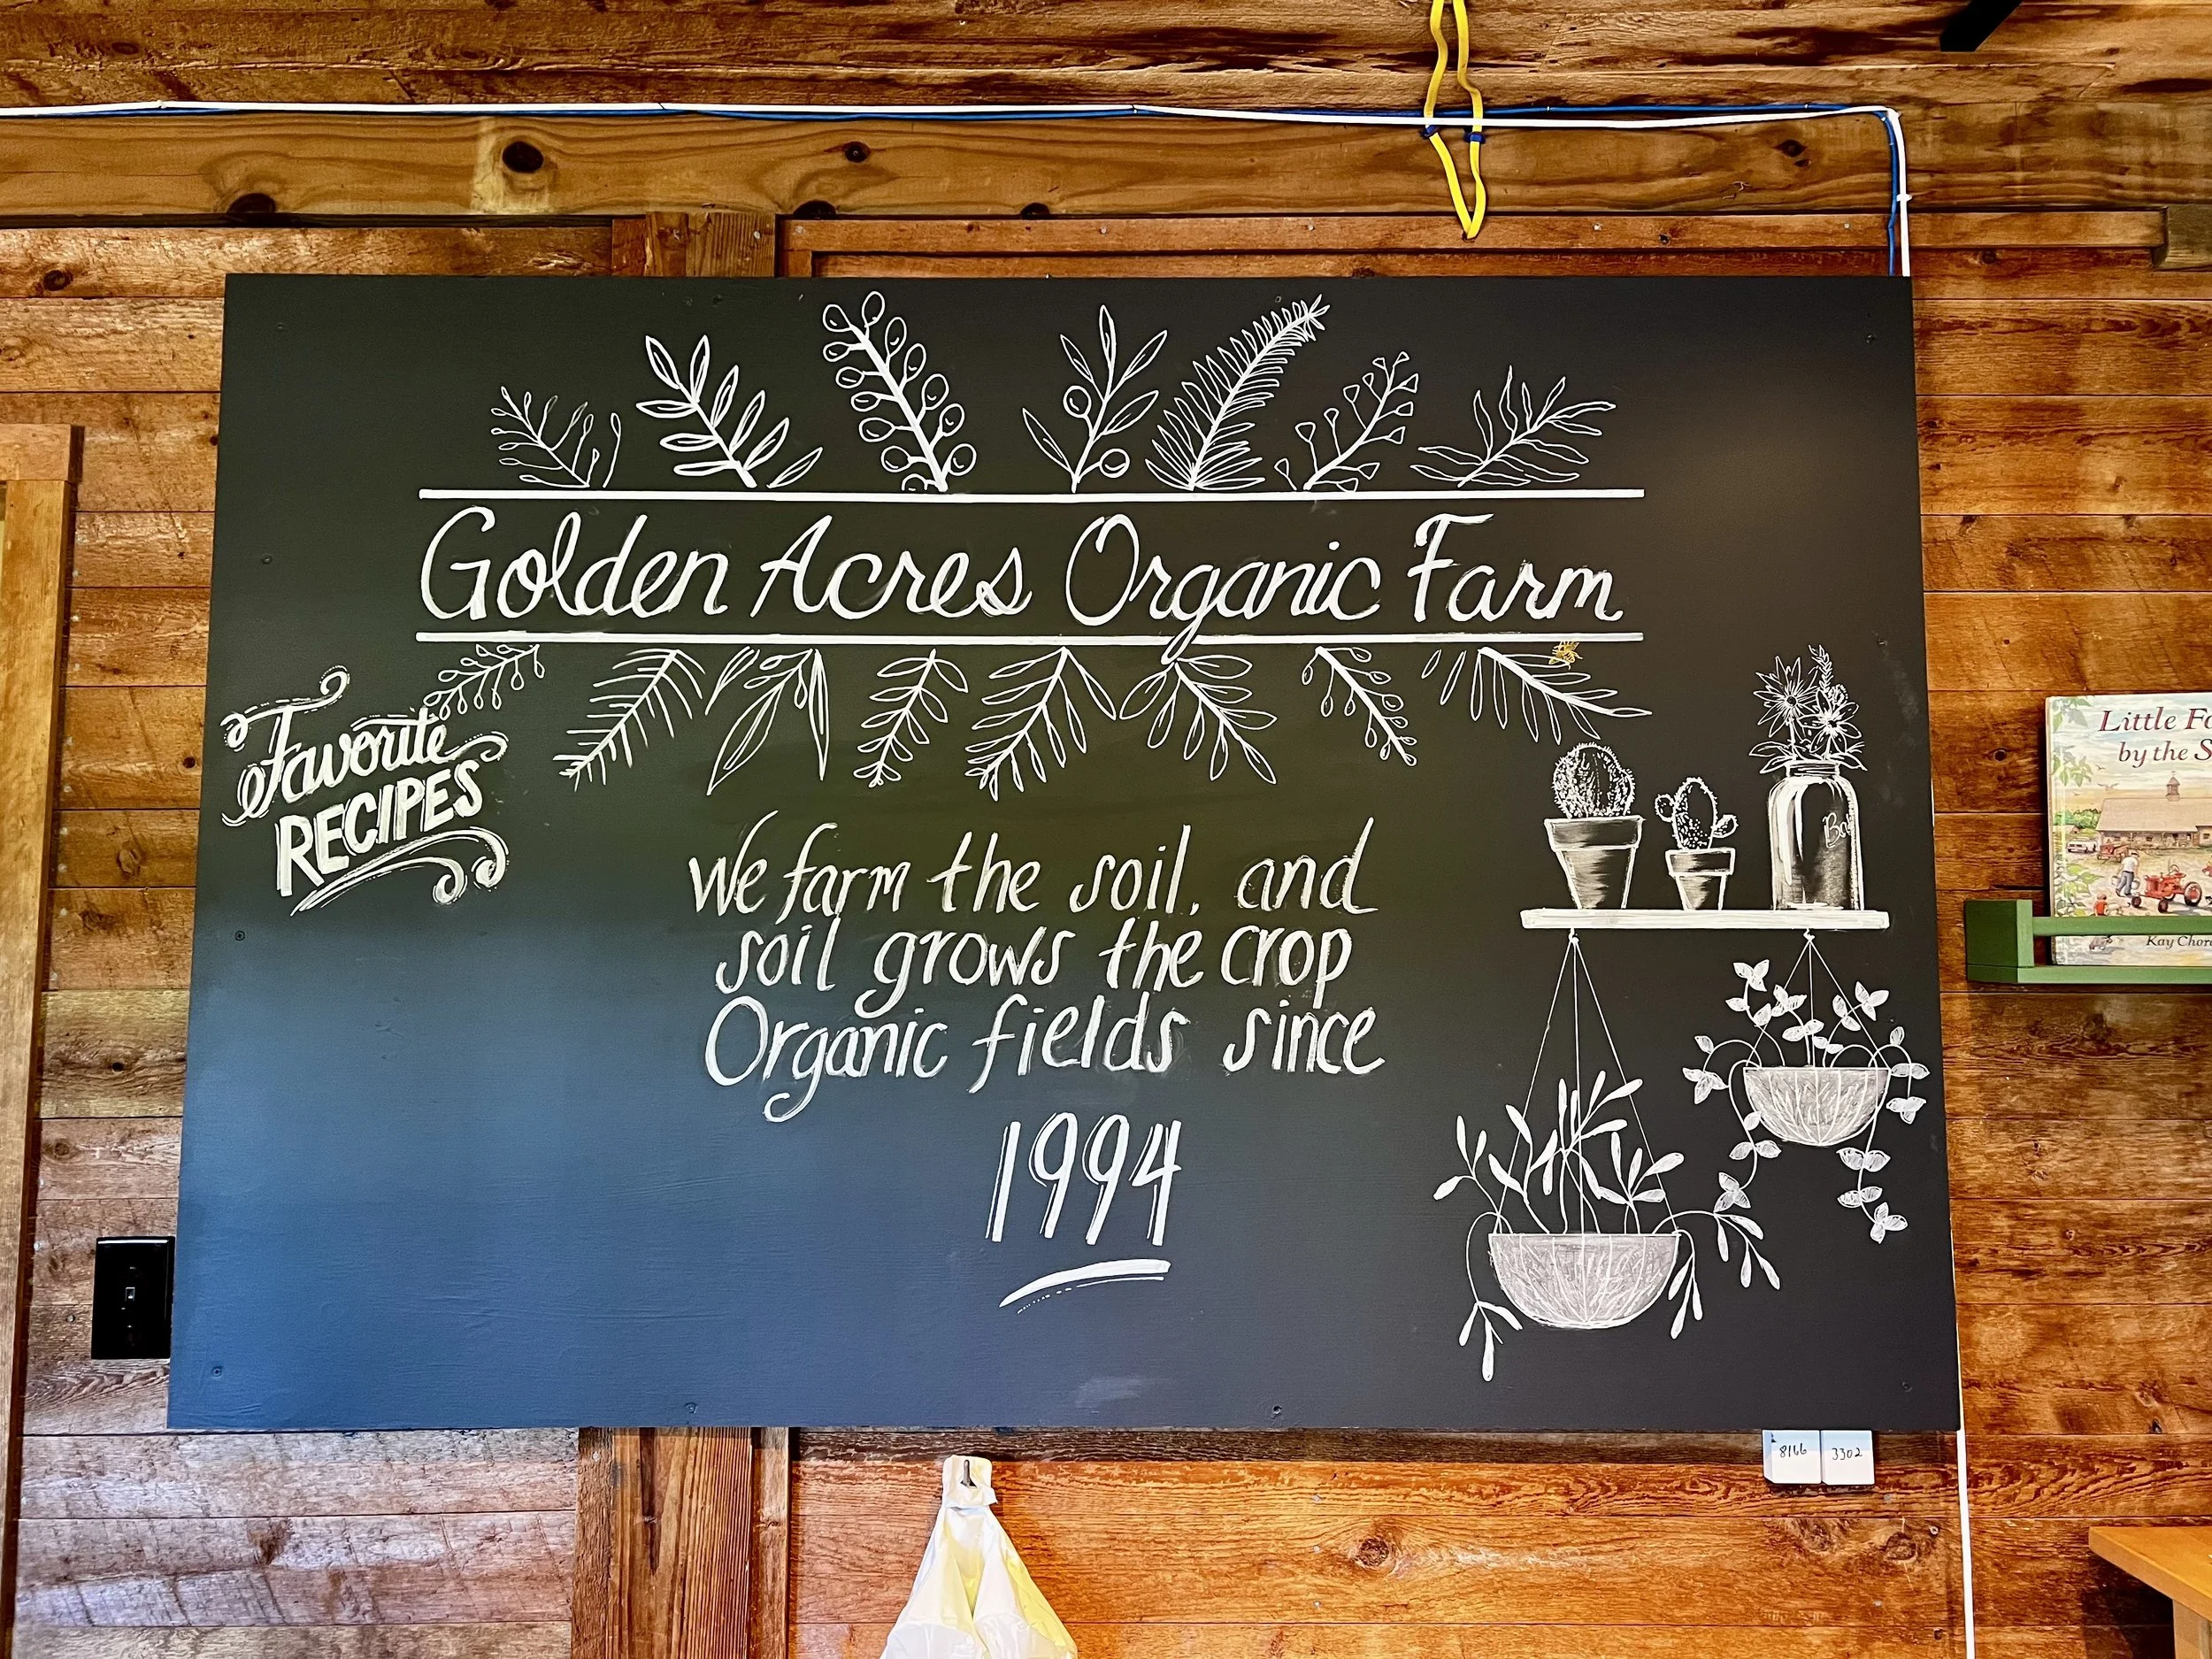 Golden Acres Organic Farm
Favorite
RECIPES
We farm the soil, and
soil grows the crop
Organic fields since
1994
Little
by the
Kay
8166
3302